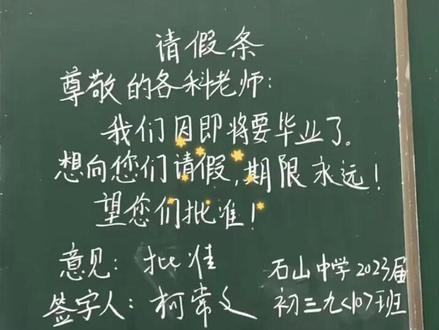 请假条
尊敬的各科老师:
我们因即将要毕业了。
想向您们请假,期限永远!
望您们批准!
意见:批准
签字人:柯常文
石山中学2023届
初三九<10>班